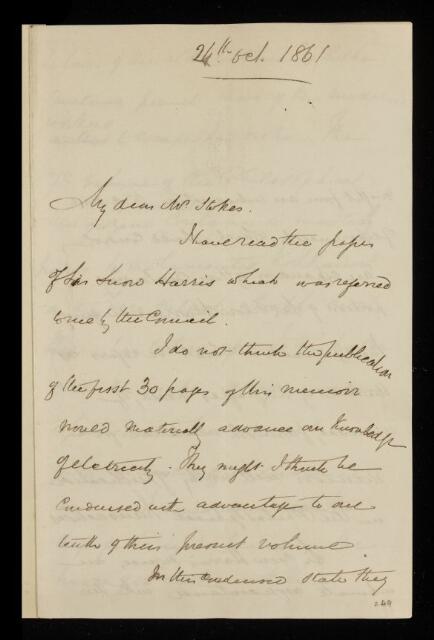 24th Oct. 1861
My dear Mr Stokes.
I have read the paper
of Sir Snow Harris which was referred
to me by the Council.
I do not think the publication
of the first 30 pages of this memoir
would materially advance our Knowledge
of electricity. They might I think be
Condensed with advantage to one
tenth of their present volume.
In this condensed state they
249